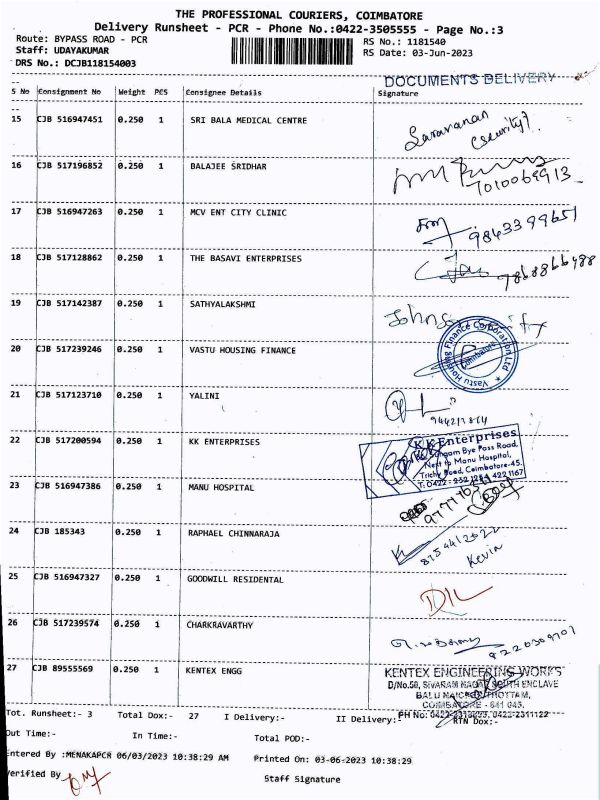 THE PROFESSIONAL COURIERS, COIMBATORE
Delivery Runsheet - PCR - Phone No.:0422-3505555 - Page No.:3
Route: BYPASS ROAD - PCR
RS No.: 1181540
Staff: UDAYAKUMAR
RS Date: 03-Jun-2023
DRS No.: DCJB118154003
DOCUMENTS DELIVERY
S No Consignment No Weight PCS Consignee Details Signature
15 CJB 516947451 0.250 1 SRI BALA MEDICAL CENTRE Saravanan
(Security)
16 CJB 517196852 0.250 1 BALAJEE SRIDHAR
7010069913
17 CJB 516947263 0.250 1 MCV ENT CITY CLINIC
9843399651
18 CJB 517128862 0.250 1 THE BASAVI ENTERPRISES
7868866488
19 CJB 517142387 0.250 1 SATHYALAKSHMI
20 CJB 517239246 0.250 1 VASTU HOUSING FINANCE
Vastu Housing Finance Corporation Ltd
Coimbatore
21 CJB 517123710 0.250 1 YALINI
22 CJB 517200594 0.250 1 KK ENTERPRISES
KK Enterprises
Bye Pass Road,
Next to Manu Hospital,
Trichy Road, Coimbatore-45.
23 CJB 516947386 0.250 1 MANU HOSPITAL
24 CJB 185343 0.250 1 RAPHAEL CHINNARAJA
8754412522
Kevin
25 CJB 516947327 0.250 1 GOODWILL RESIDENTAL
26 CJB 517239574 0.250 1 CHARKRAVARTHY
27 CJB 89555569 0.250 1 KENTEX ENGG
KENTEX ENGINEERING WORKS
D/No.50, SIVARAM NAGAR SOUTH ENCLAVE
BALU NAICKER THOTTAM,
COIMBATORE - 641 045.
Tot. Runsheet:- 3 Total Dox:- 27 I Delivery:- II Delivery:- RTN Dox:-
Out Time:- In Time:- Total POD:-
Entered By :MENAKAPCR 06/03/2023 10:38:29 AM Printed On: 03-06-2023 10:38:29
Verified By
Staff Signature